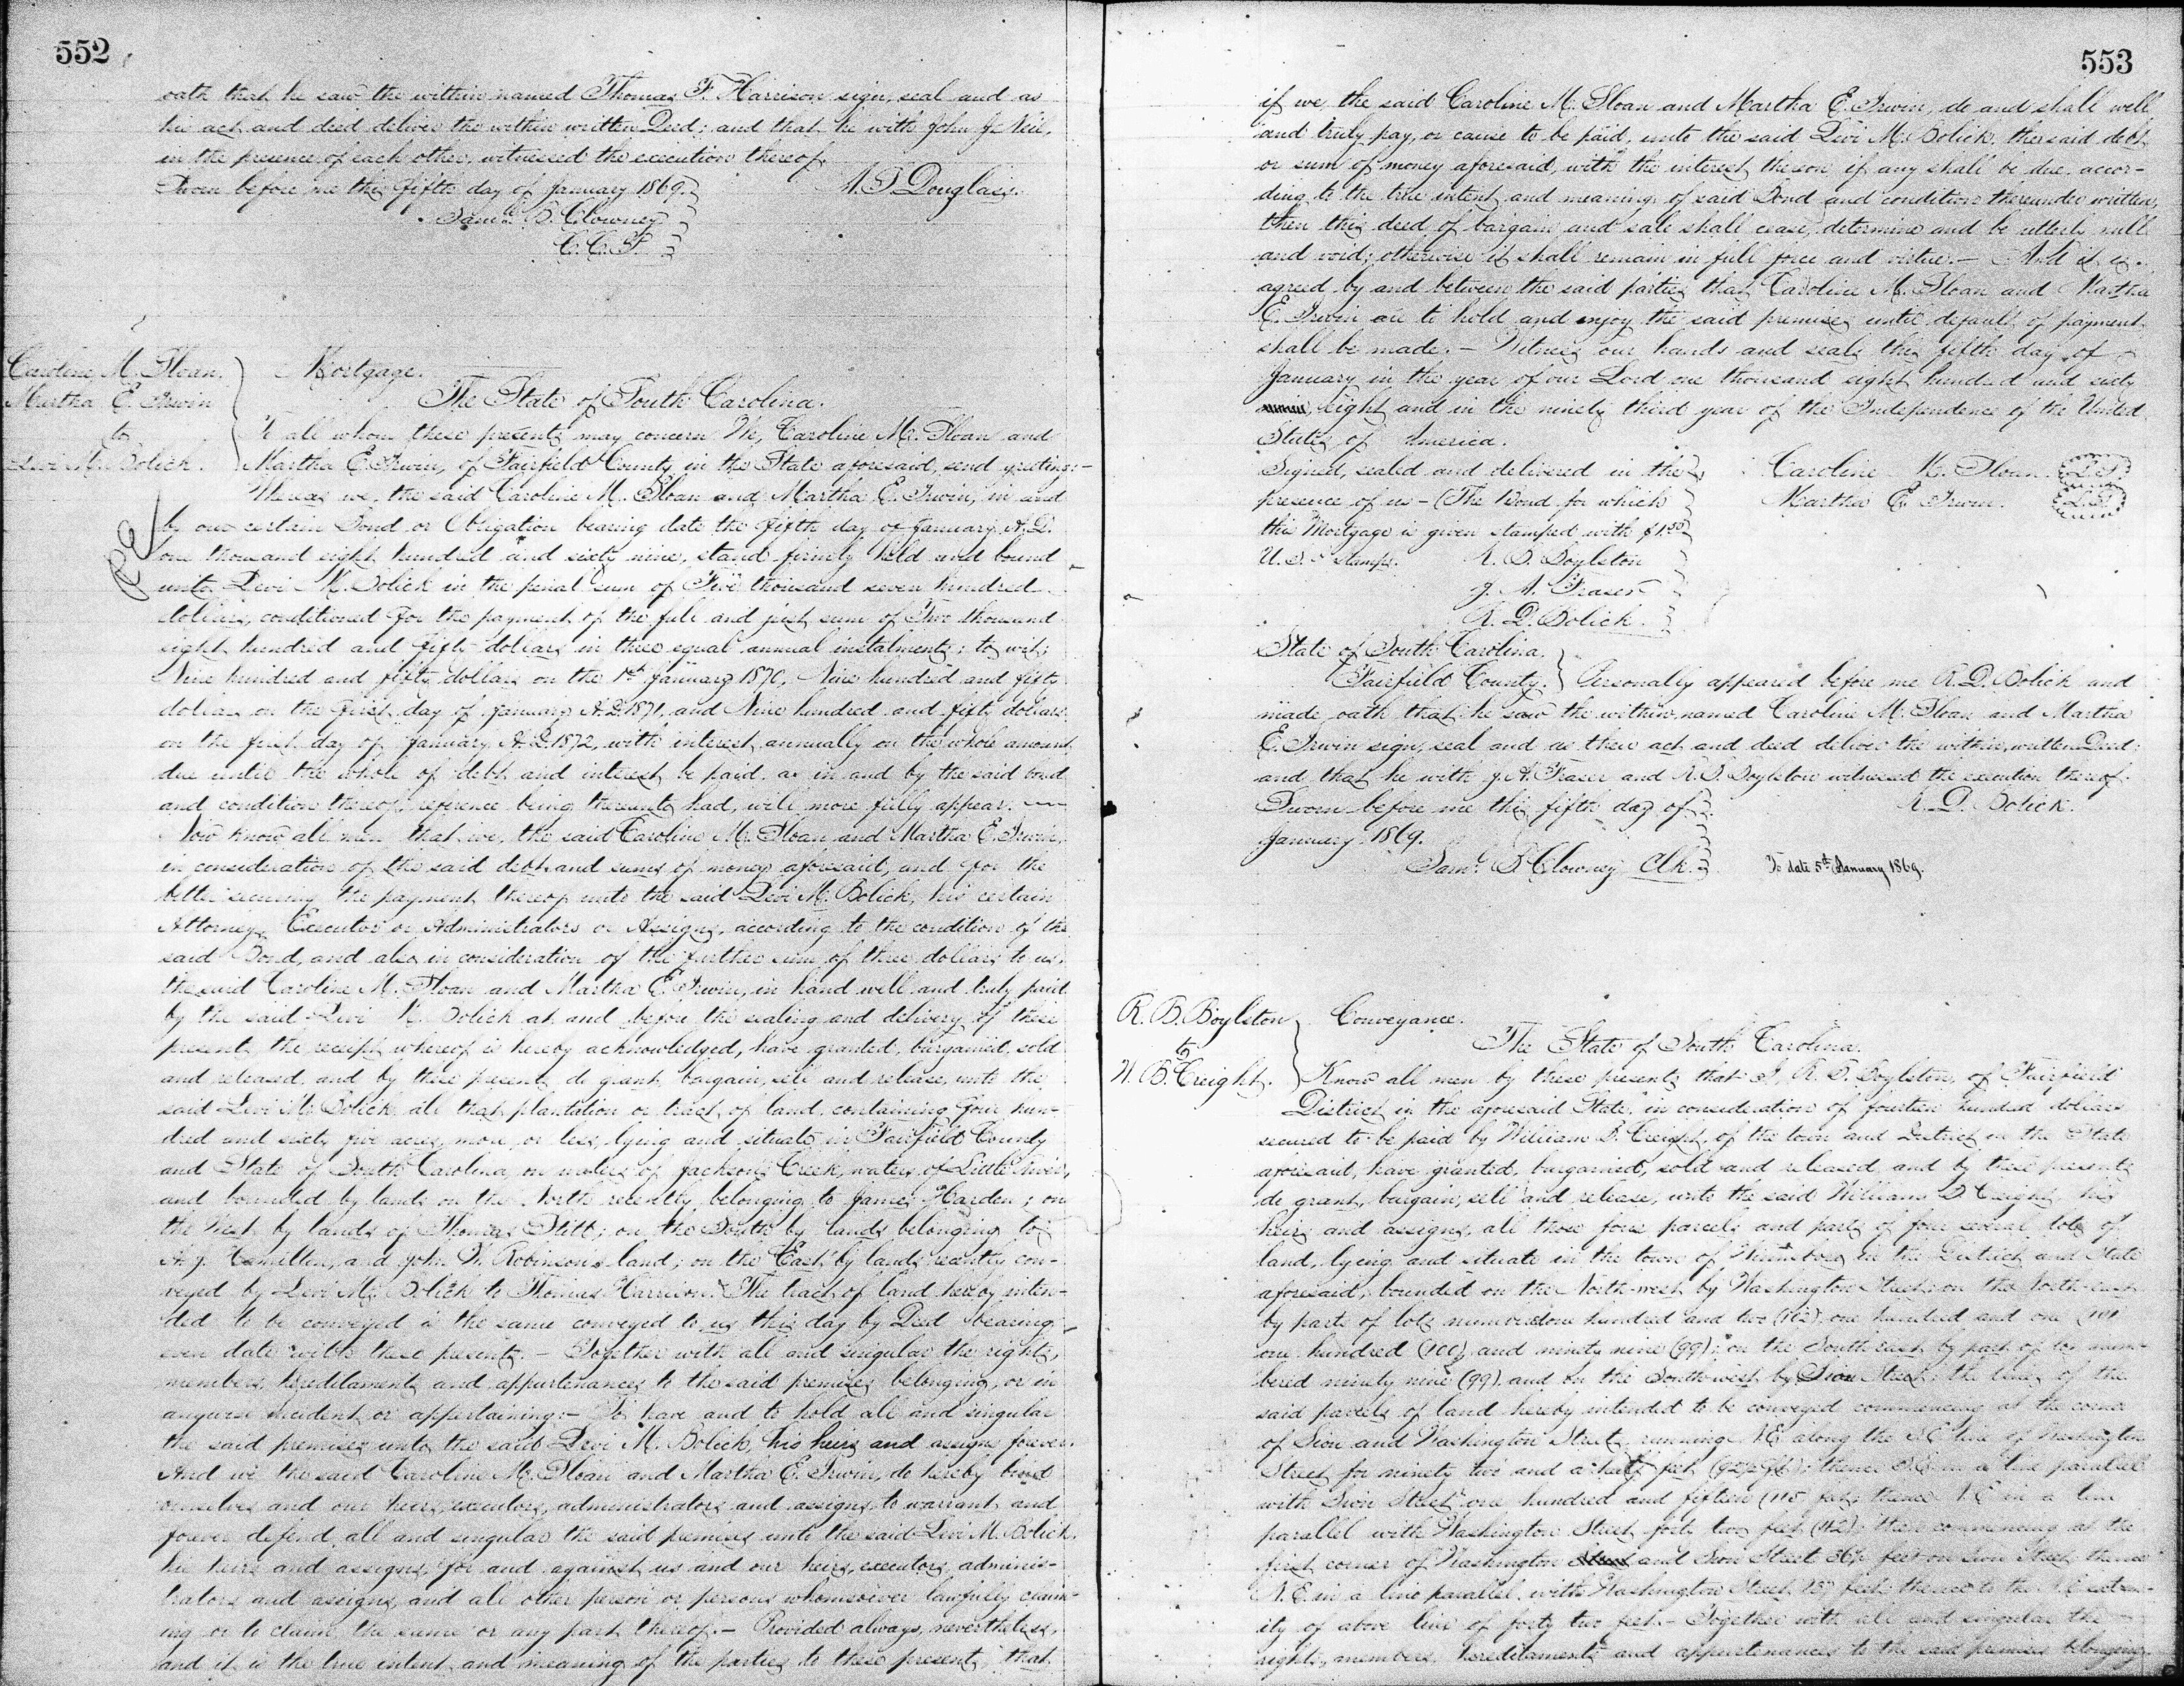 552
oath that he saw the within named Thomas F. Harrison sign, seal and as
his act and deed deliver the within written Deed; and that he with John J. Neil,
in the presence of each other, witnessed the execution thereof.
Sworn before me this fifth day of January 1869. Douglass.
Saml. B. Clowney
C.C.P.
Caroline M. Sloan.
Martha E. Irwin
to
Levi M. Bolick.
Mortgage.
The State of South Carolina.
To all whom these presents may concern We, Caroline M. Sloan and
Martha E. Irwin, of Fairfield County in the State aforesaid, send greeting:-
Whereas we, the said Caroline M. Sloan and Martha E. Irwin, in and
by our certain Bond or Obligation bearing date the fifth day of January A.D.
one thousand eight hundred and sixty nine, stand firmly held and bound
unto Levi M. Bolick in the penal sum of Five thousand seven hundred
dollars, conditioned for the payment of the full and just sum of Two thousand
eight hundred and fifty dollars in three equal annual instalments; to wit;
Nine hundred and fifty dollars on the 1st January 1870, Nine hundred and fifty
dollars on the first day of January A.D. 1871, and Nine hundred and fifty dollars
on the first day of January A.D. 1872, with interest annually on the whole amount
due until the whole of debt and interest be paid, as in and by the said bond
and condition thereof, reference being thereunto had, will more fully appear.
Now know all men that we, the said Caroline M. Sloan and Martha E. Irwin,
in consideration of the said debt and sums of money aforesaid, and for the
better securing the payment thereof unto the said Levi M. Bolick, his certain
Attorneys, Executors or Administrators or Assigns, according to the condition of the
said Bond, and also in consideration of the further sum of three dollars to us,
the said Caroline M. Sloan and Martha E. Irwin, in hand well and truly paid
by the said Levi M. Bolick at and before the sealing and delivery of these
presents, the receipt whereof is hereby acknowledged, have granted, bargained, sold
and released, and by these presents do grant, bargain, sell and release, unto the
said Levi M. Bolick all that plantation or tract of land, containing four hun-
dred and sixty five acres, more or less, lying and situate in Fairfield County
and State of South Carolina, on waters of Jackson's Creek, waters of Little River,
and bounded by lands on the North recently belonging to James Harden; on
the West by lands of Thomas Stitt; on the South by lands belonging to
A. J. Hamilton, and John W. Robinson's land; on the East by lands recently con-
veyed by Levi M. Bolick to Thomas Harrison. The tract of land hereby inten-
ded to be conveyed is the same conveyed to us this day by Deed bearing
even date with these presents. - Together with all and singular the rights,
members, hereditaments and appurtenances to the said premises belonging, or in
anywise incident or appertaining:- To have and to hold all and singular
the said premises unto the said Levi M. Bolick, his heirs and assigns forever.
And we the said Caroline M. Sloan and Martha E. Irwin, do hereby bind
ourselves and our heirs, executors, administrators and assigns, to warrant and
forever defend all and singular the said premises unto the said Levi M. Bolick,
his heirs and assigns, for and against us and our heirs, executors, adminis-
trators and assigns, and all other person or persons whomsoever lawfully claim-
ing or to claim the same or any part thereof. - Provided always, nevertheless,
and it is the true intent and meaning of the parties to these presents, that
553
if we the said Caroline M. Sloan and Martha E. Irwin, do and shall well
and truly pay, or cause to be paid, unto the said Levi M. Bolick, the said debt
or sum of money aforesaid, with the interest thereon if any shall be due, accor-
ding to the true intent and meaning of said Bond and condition thereunder written,
then this deed of bargain and sale shall cease, determine and be utterly null
and void; otherwise it shall remain in full force and virtue. - And it is
agreed by and between the said parties that Caroline M. Sloan and Martha
E. Irwin are to hold and enjoy the said premises until default of payment
shall be made. - Witness our hands and seals this fifth day of
January in the year of our Lord one thousand eight hundred and sixty
eight and in the ninety third year of the Independence of the United
States of America.
Signed, sealed and delivered in the Caroline M. Sloan L.S.
presence of us - (The Bond for which Martha E. Irwin. L.S.
this Mortgage is given stamped with $1.50
U.S. Stamps. R. B. Boylston
J. A. Fraser
R. D. Bolick.
State of South Carolina.
Fairfield County. Personally appeared before me R. D. Bolick and
made oath that he saw the within named Caroline M. Sloan and Martha
E. Irwin sign, seal and as their act and deed deliver the within written Deed;
and that he with J. A. Fraser and R. B. Boylston witnessed the execution thereof.
Sworn before me this fifth day of R. D. Bolick.
January 1869.
Saml. B. Clowney Clk. date 5th January 1869.
R. B. Boylston
to
W. B. Creight.
Conveyance.
The State of South Carolina.
Know all men by these presents that I, R. B. Boylston, of Fairfield
District in the aforesaid State, in consideration of fourteen hundred dollars
secured to be paid by William B. Creight, of the town and District in the State
aforesaid, have granted, bargained, sold and released, and by these presents
do grant, bargain, sell and release, unto the said William B. Creight, his
heirs and assigns, all those four parcels and parts of four several lots of
land, lying and situate in the town of Winnsboro in the District and State
aforesaid, bounded on the North-west by Washington Street; on the North-east
by parts of lots numbered one hundred and two (102), one hundred and one (101
one hundred (100), and ninety nine (99); on the South east by part of lot num-
bered ninety nine (99), and on the South west by Sion Street; the lines of the
said parcels of land hereby intended to be conveyed commencing at the corner
of Sion and Washington Streets running N.E along the S.E line of Washington
Street for ninety two and a half feet (92½ ft); thence S.E. in a line parallel
with Sion Street one hundred and fifteen (115 feet; thence N.E in a line
parallel with Washington Street forty two feet (42); then commencing at the
first corner of Washington and Sion Street feet on Sion Street thence
N.E. in a line parallel with Washington Street feet; thence to the
ity of above line of forty two feet. - Together with all and singular the
rights, members, hereditaments and appurtenances to the said premises belonging,